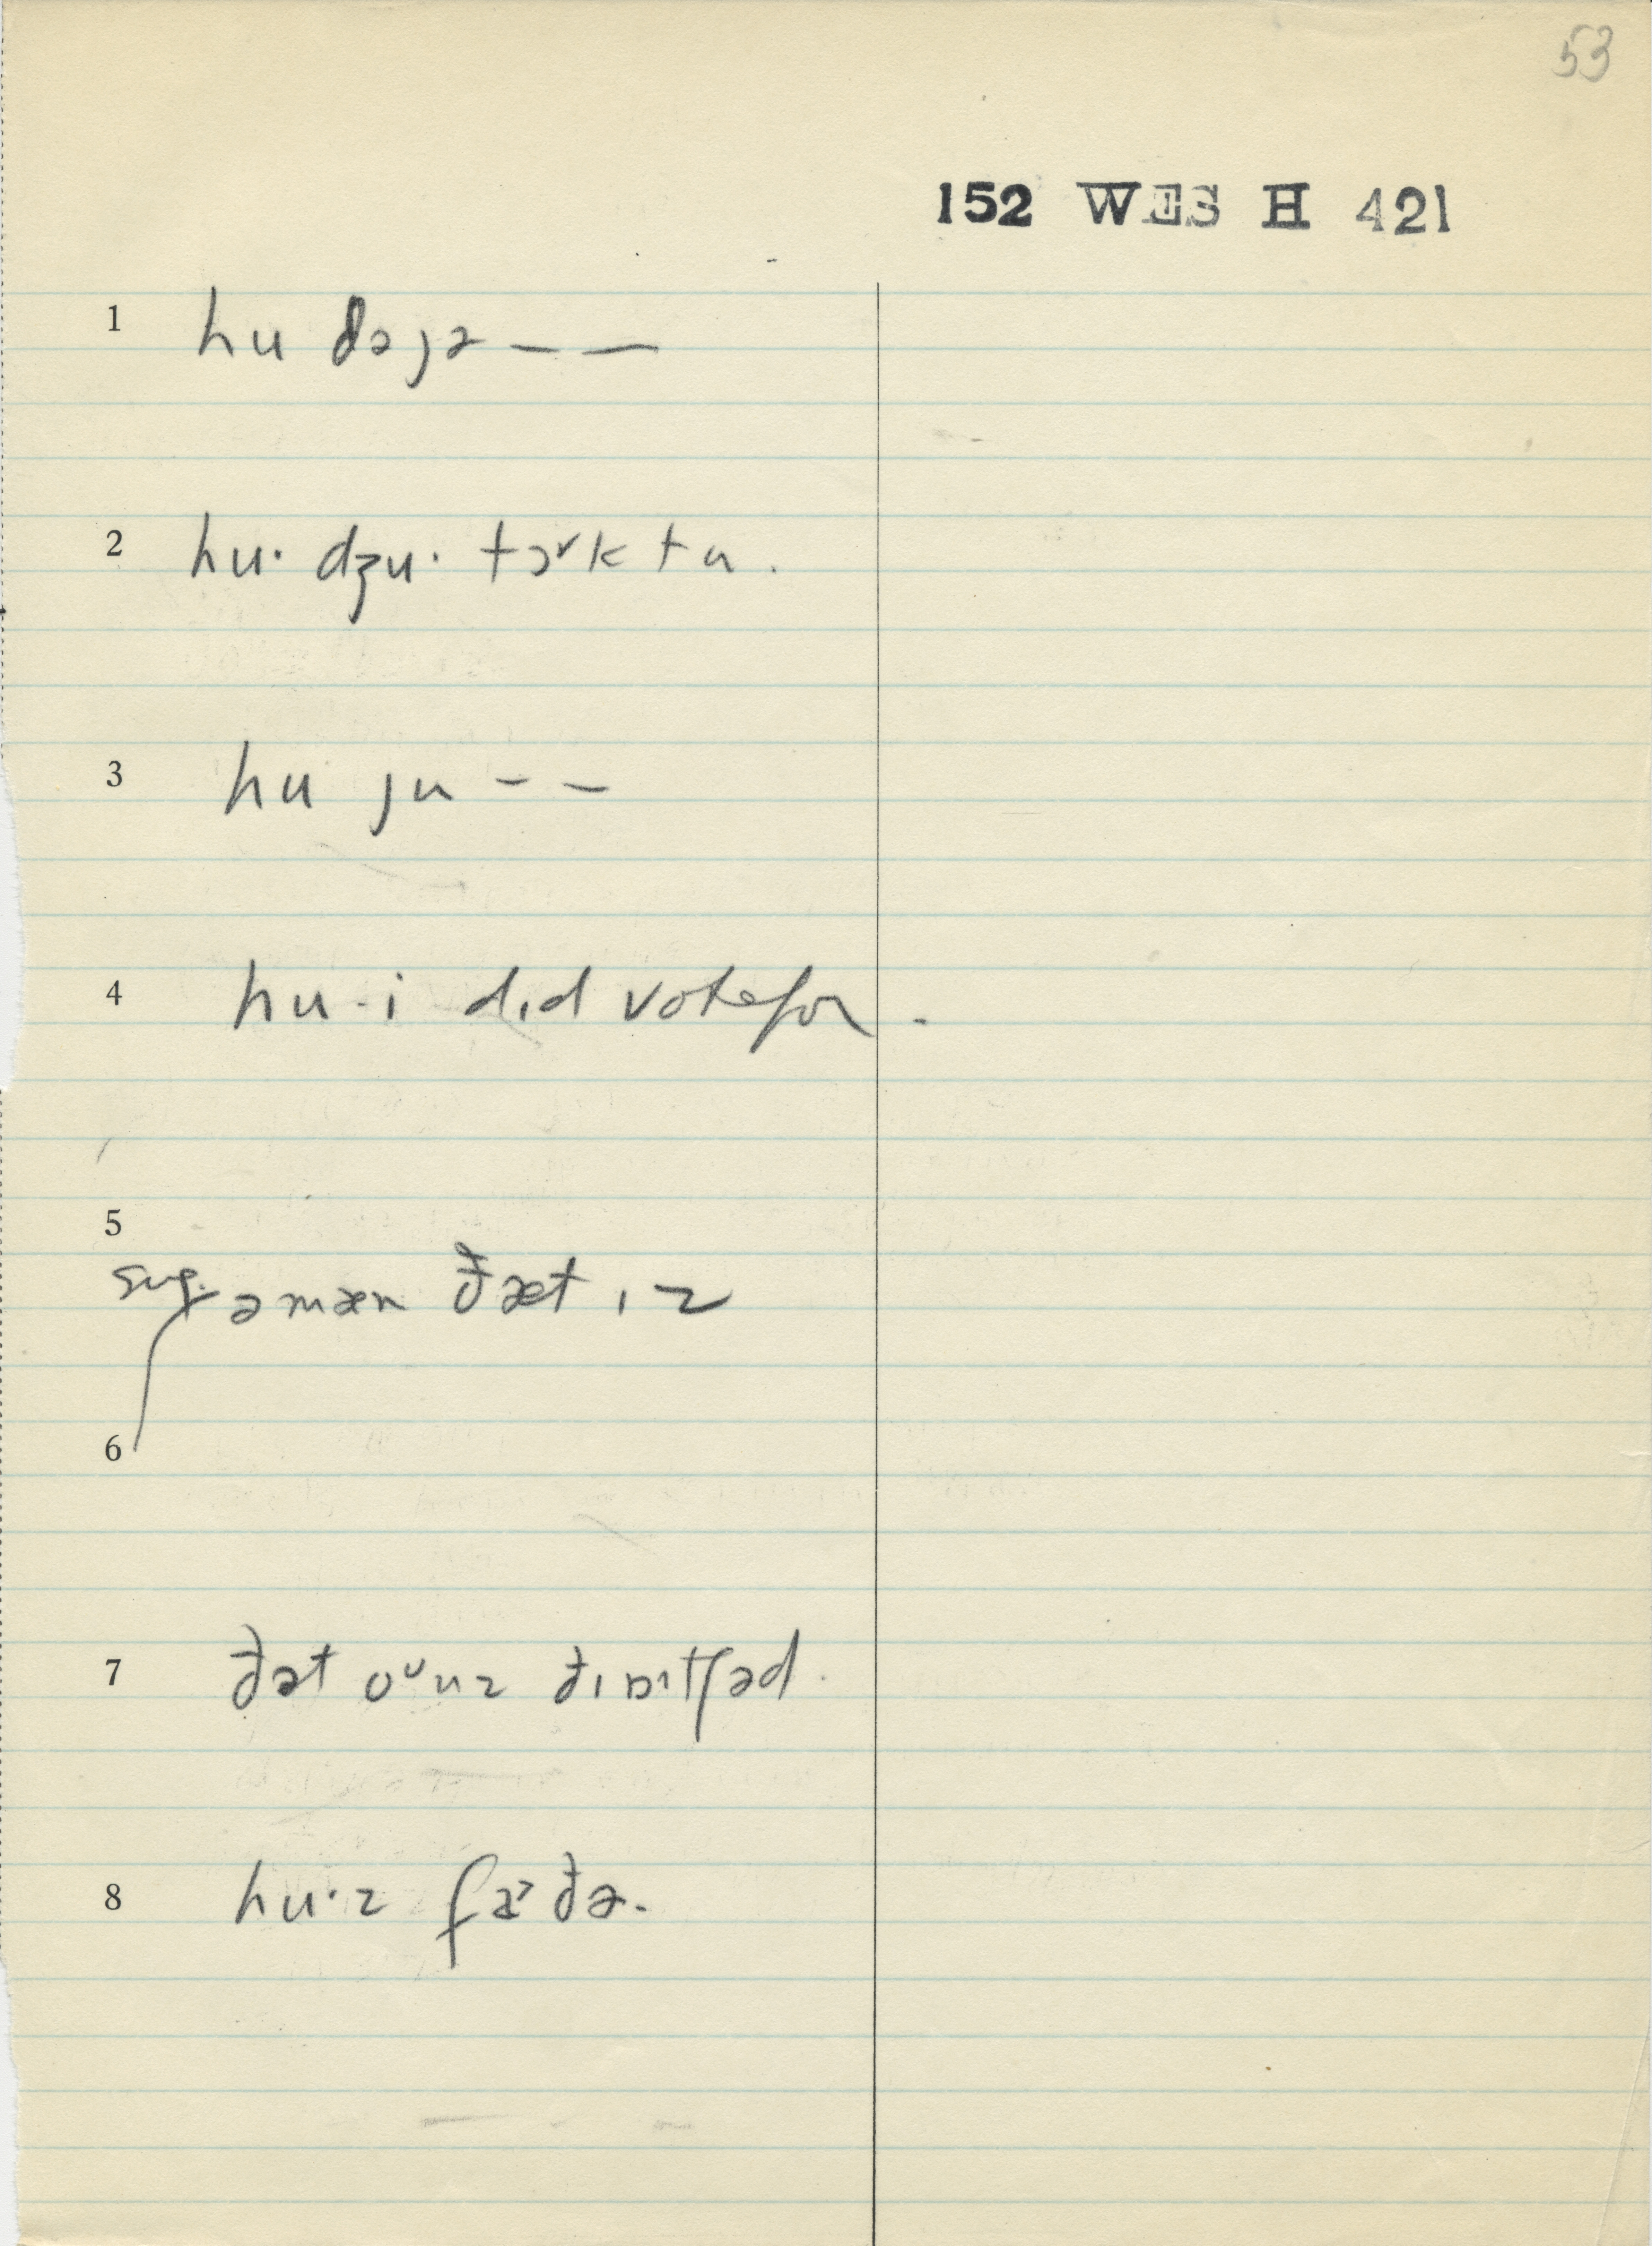 53
152 WES H 421
1 hu dəjə – –
2 hu· dʒu· tɔᵛk tu.
3 hu ju – –
4 hu·i did vote for.
5
sug. ə mæn ðæt ɪz
6
7 ðət oᵘnz ðɪ ɔɪtʃəd.
8 hu·z fɑᵊðə.